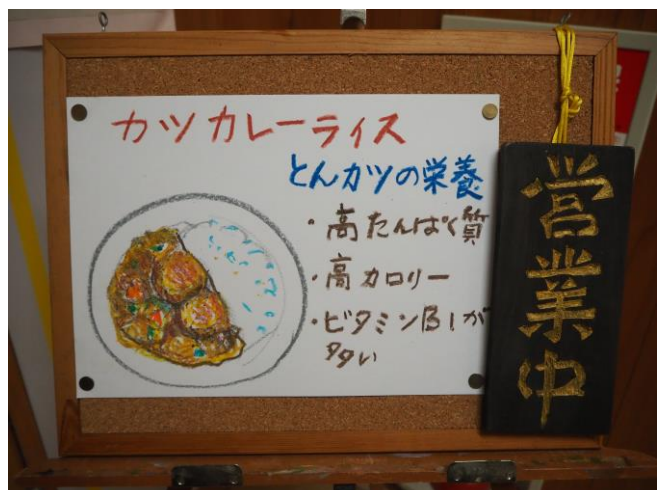 カツカレーライス
とんカツの栄養
・高たんぱく質
・高カロリー
・ビタミンB1が
多い
営業中